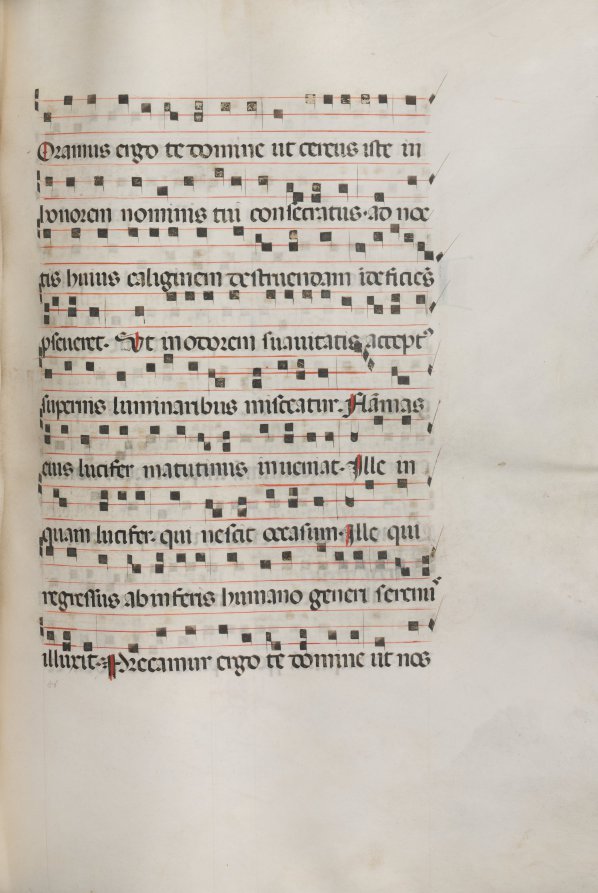 Oramus ergo te domine ut cereus iste in
honorem nominis tui consecratus· ad noc
tis huius caliginem destruendam īdeficiēs
pseueret· Et in odorem suauitatis accept⁹
supernis luminaribus misceatur· Flāmas
eius lucifer matutinus inueniat· Ille in
quam lucifer· qui nescit occasum· Ille qui
regressus ab inferis humano generi serenu᷒
illuxit· Precamur ergo te domine ut nos